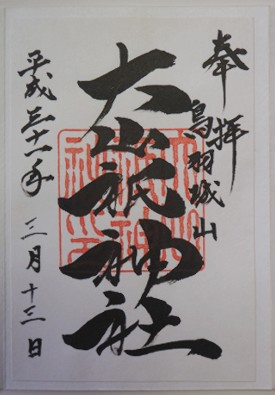 奉拝
鳥羽城山
大山祇神社
平成三十一年
三月十三日